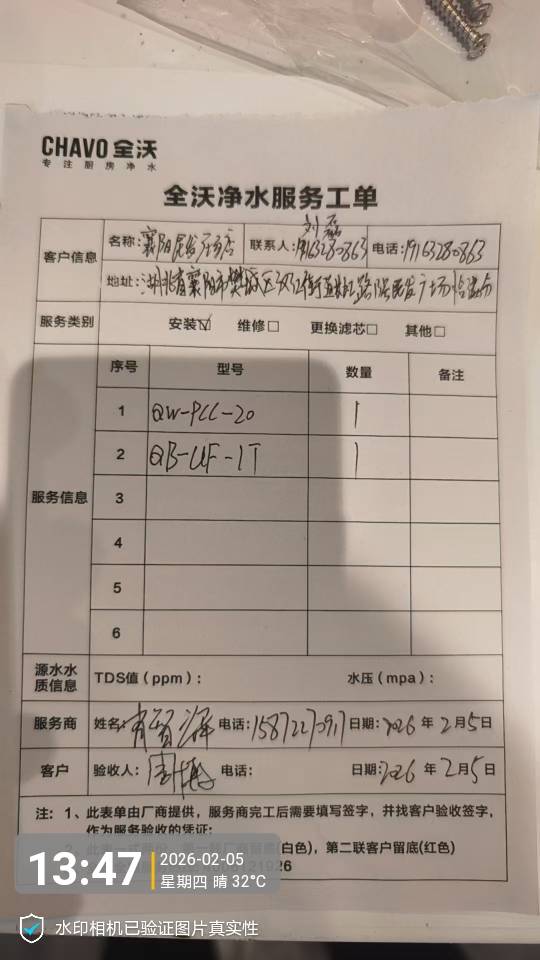 CHAVO 全沃
专注厨房净水
全沃净水服务工单
客户信息
名称：襄阳民发广场店 联系人：刘磊 19163280863 电话：19163280863
地址：湖北省襄阳市樊城区
服务类别 安装☑ 维修□ 更换滤芯□ 其他□
服务信息
序号 型号 数量 备注
1 QW-PCC-20 1
2 QB-UF-1T 1
3
4
5
6
源水水质信息 TDS值（ppm）： 水压（mpa）：
服务商 姓名： 电话：15872270917 日期：2026 年 2月5日
客户 验收人： 电话： 日期：2026 年 2月5日
注：1、此表单由厂商提供，服务商完工后需要填写签字，并找客户验收签字，
作为服务验收的凭证；
(白色)，第二联客户留底(红色)
13:47
2026-02-05
星期四 晴 32°C
水印相机已验证图片真实性